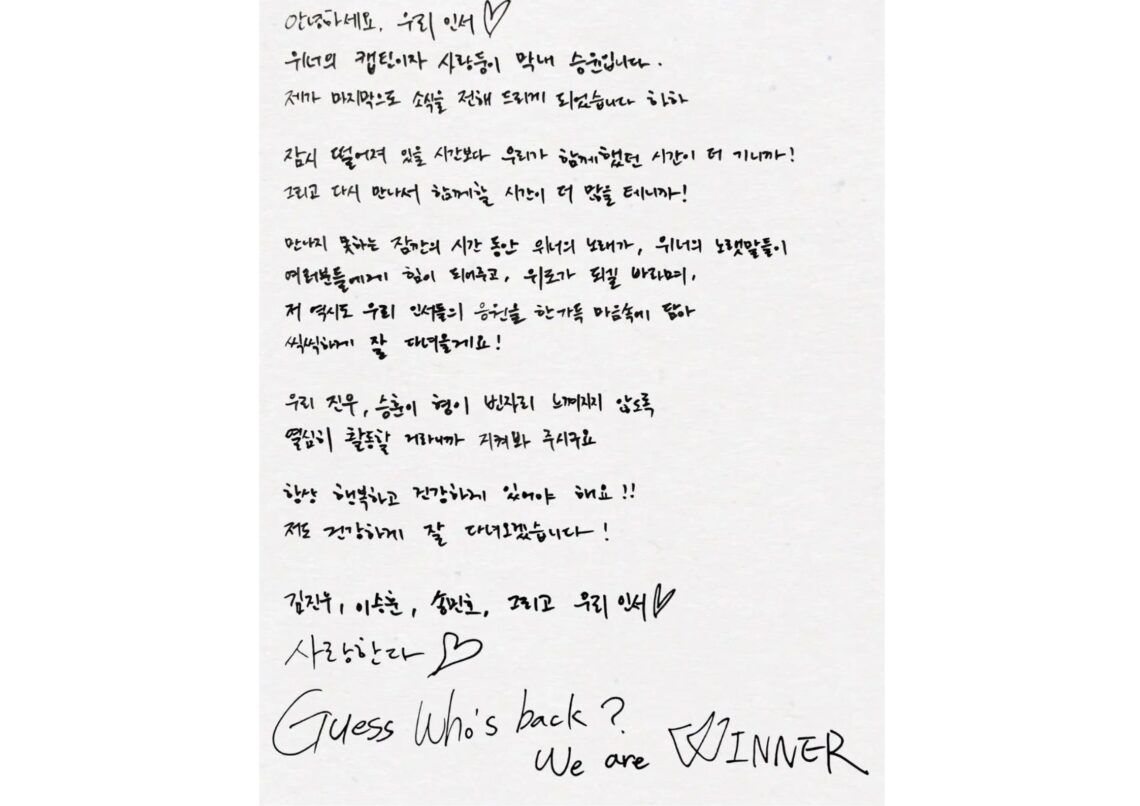 안녕하세요. 우리 인서♡
위너의 캡틴이자 사랑둥이 막내 승윤입니다.
제가 마지막으로 소식을 전해 드리게 되었습니다 하하
잠시 떨어져 있을 시간보다 우리가 함께했던 시간이 더 기니까!
그리고 다시 만나서 함께할 시간이 더 많을 테니까!
만나지 못하는 잠깐의 시간 동안 위너의 노래가, 위너의 노랫말들이
여러분들에게 힘이 되어주고, 위로가 되길 바라며,
저 역시도 우리 인서들의 응원을 한가득 마음속에 담아
씩씩하게 잘 다녀올게요!
우리 진우, 승훈이 형이 빈자리 느껴지지 않도록
열심히 활동할 거라니까 지켜봐 주시구요
항상 행복하고 건강하게 있어야 해요!!
저도 건강하게 잘 다녀오겠습니다!
김진우, 이승훈, 송민호, 그리고 우리 인서♡
사랑한다♡
Guess Who's back?
We are WINNER